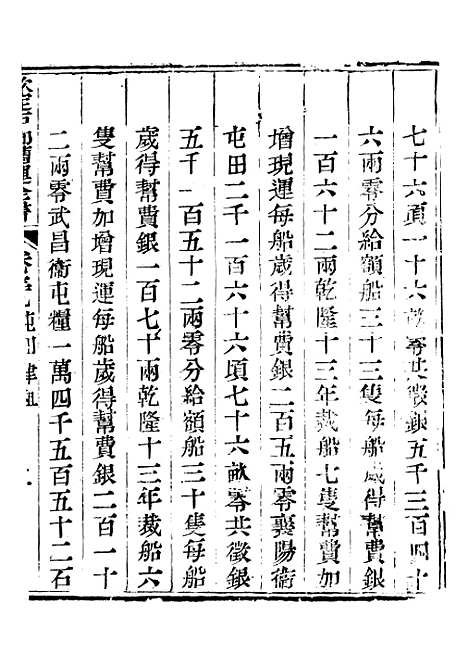 七十六頃一十六畝零共徵銀五千三百四十
六兩零分給額船三十三隻每船歲得幫費銀
一百六十二兩乾隆十三年裁船七隻幫費加
增現運每船歲得幫費銀二百五兩零襄陽衛
屯田二千一百六十六頃七十六畝零共徵銀
五千一百五十二兩零分給額船三十隻每船
歲得幫費銀一百七十兩乾隆十三年裁船六
隻幫費加增現運每船歲得幫費銀二百一十
二兩零武昌衛屯糧一萬四千五百五十二石
欽定戶部漕運全書 卷 屯田津租